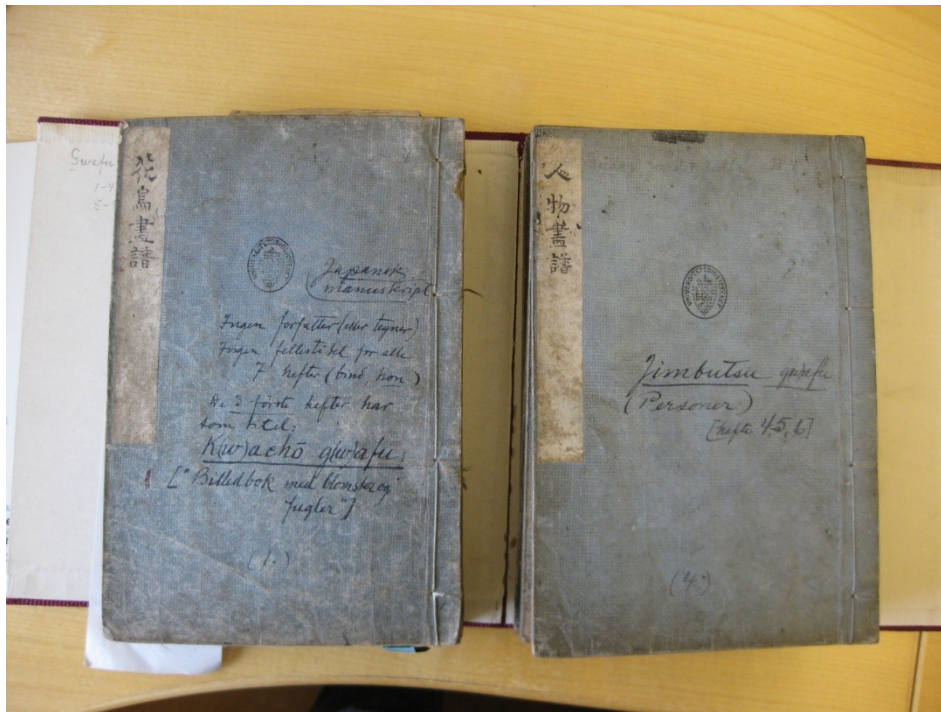 花鳥畫譜
Japansk
manuskript
Ingen forfatter (eller tegner)
Ingen fellestitel for alle
7 hefter (bind, hon)
De 3 første hefter har
som titel:
K(w)achō g(w)afu:
["Billedbok med blomster og
fugler"]
(1.)
人物畫譜
Jimbutsu g(w)afu
(Personer)
[hefte 4, 5, 6]
(4.)